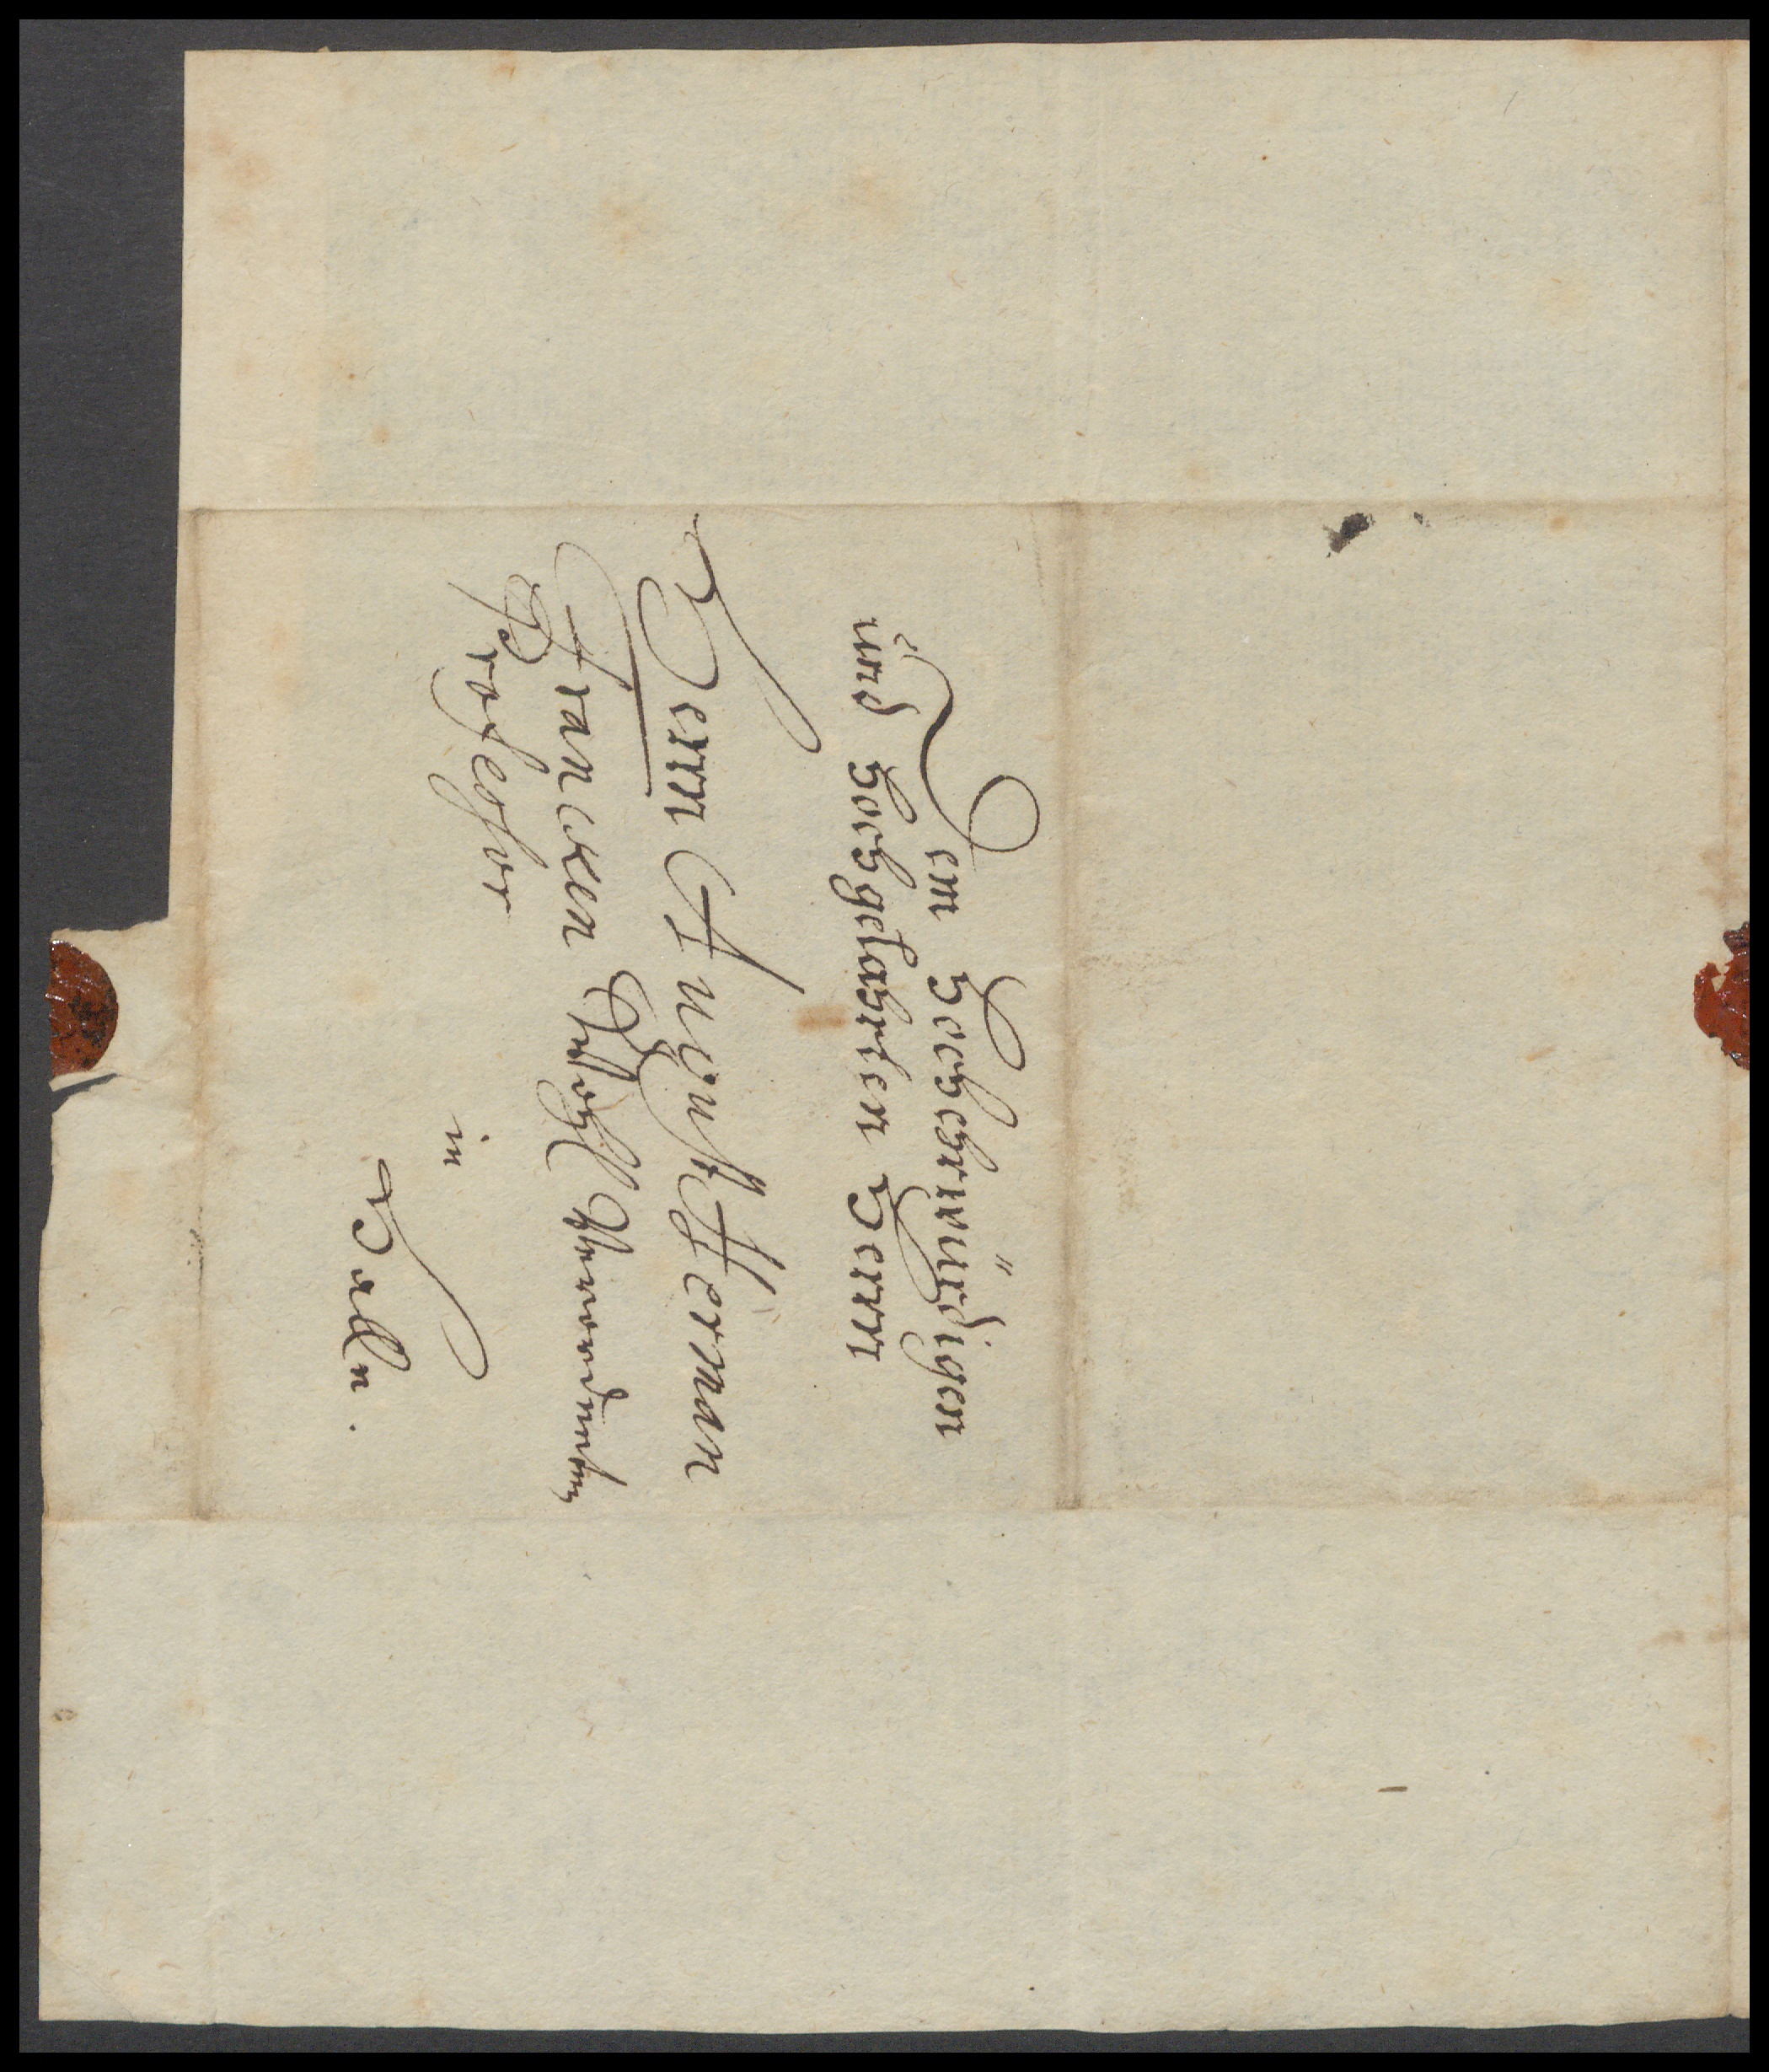 Dem Hochehrwürdigen
und Hochgelahrten Herrn
Herrn August Herman
Francken
Professor
in
Halle.